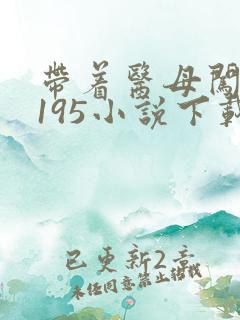 帶着醫母闖
195小説下載
已更新2章
未经同意禁止转载